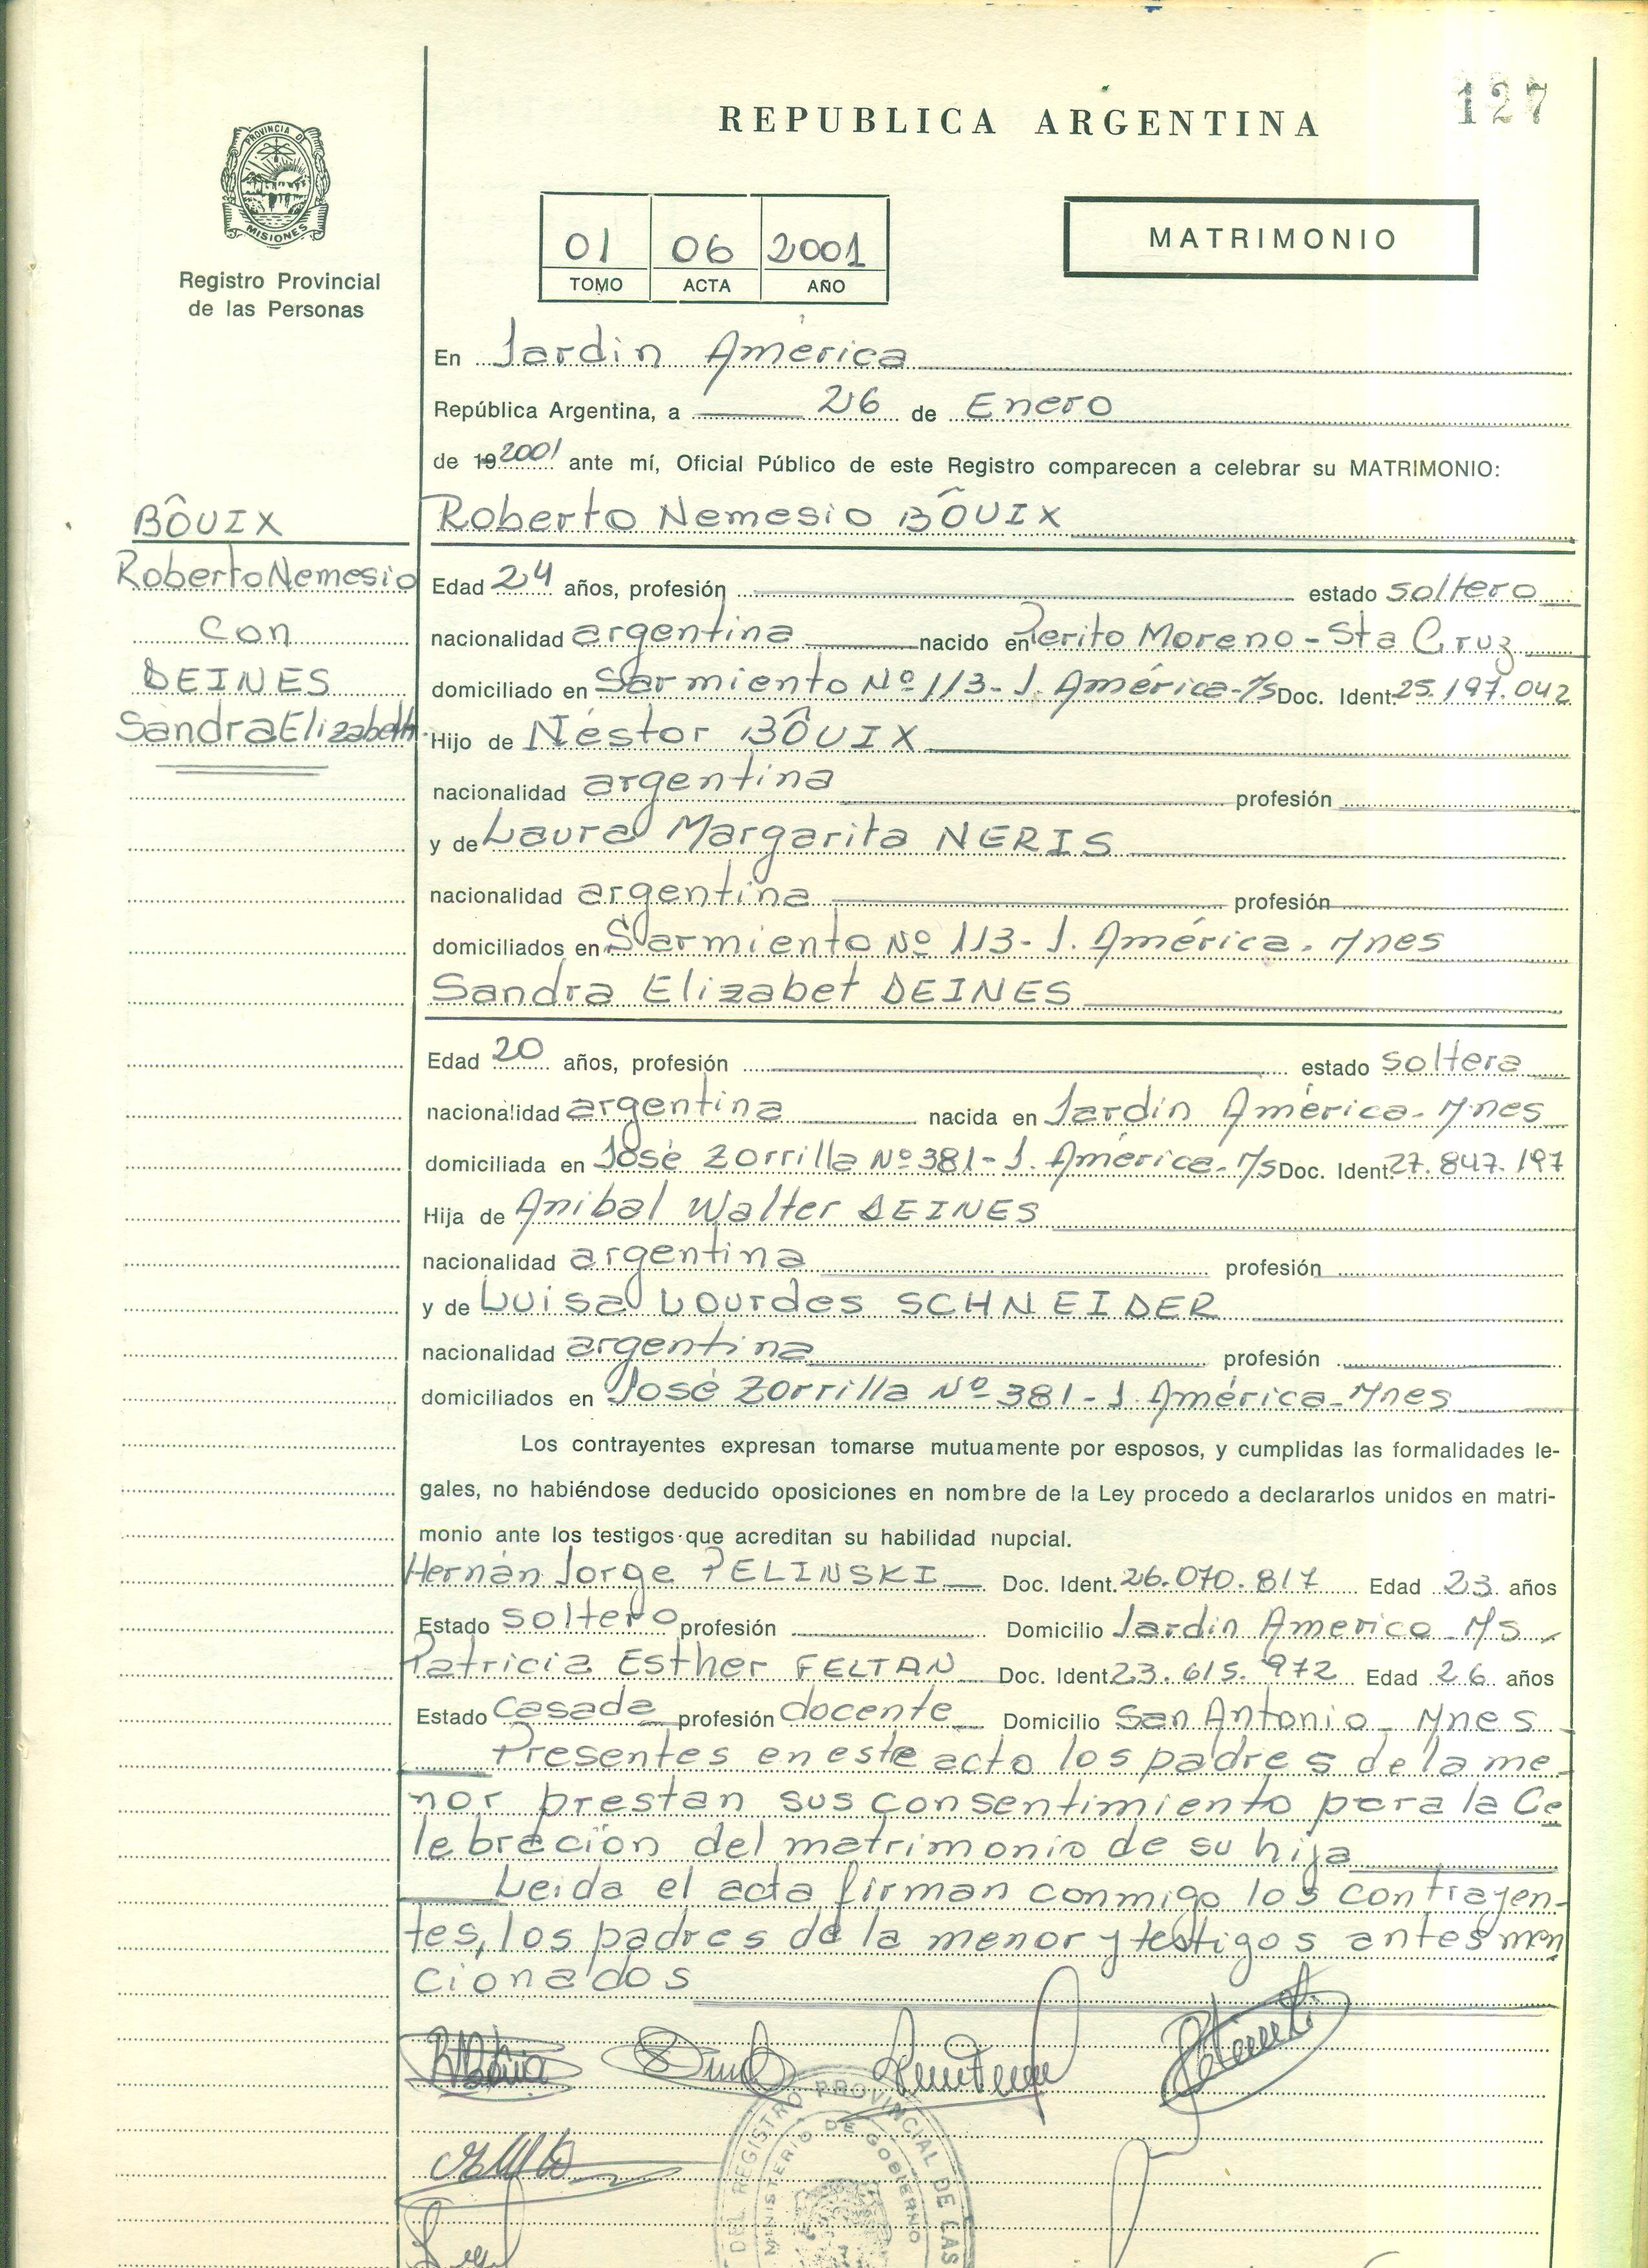 127
REPUBLICA ARGENTINA
PROVINCIA DE
MISIONES
Registro Provincial
de las Personas
01 06 2001
TOMO ACTA AÑO
MATRIMONIO
En Jardín América
República Argentina, a 26 de Enero
de 19 2001 ante mí, Oficial Público de este Registro comparecen a celebrar su MATRIMONIO:
BÔUIX
Roberto Nemesio
con
DEINES
Sandra Elizabeth.
Roberto Nemesio BÔUIX
Edad 24 años, profesión estado soltero
nacionalidad argentina nacido en Perito Moreno - Sta Cruz
domiciliado en Sarmiento Nº 113 - J. América - M/s Doc. Ident. 25.197.042
Hijo de Néstor BÔUIX
nacionalidad argentina profesión
y de Laura Margarita NERIS
nacionalidad argentina profesión
domiciliados en Sarmiento Nº 113 - J. América - Mnes
Sandra Elizabet DEINES
Edad 20 años, profesión estado soltera
nacionalidad argentina nacida en Jardín América - Mnes
domiciliada en José Zorrilla Nº 381 - J. América - M/s Doc. Ident. 27.847.197
Hija de Anibal Walter DEINES
nacionalidad argentina profesión
y de Luisa Lourdes SCHNEIDER
nacionalidad argentina profesión
domiciliados en José Zorrilla Nº 381 - J. América - Mnes
Los contrayentes expresan tomarse mutuamente por esposos, y cumplidas las formalidades le-
gales, no habiéndose deducido oposiciones en nombre de la Ley procedo a declararlos unidos en matri-
monio ante los testigos que acreditan su habilidad nupcial.
Hernán Jorge PELINSKI Doc. Ident. 26.070.817 Edad 23 años
Estado soltero profesión Domicilio Jardín America - M/s
Patricia Esther FELTAN Doc. Ident. 23.615.972 Edad 26 años
Estado casada profesión docente Domicilio San Antonio - Mnes
Presentes en este acto los padres de la me-
nor prestan sus consentimiento para la Ce
lebración del matrimonio de su hija
Leida el acta firman conmigo los contrayen-
tes, los padres de la menor y testigos antes men
cionados
DEL REGISTRO PROVINCIAL DE
MINISTERIO DE GOBIERNO